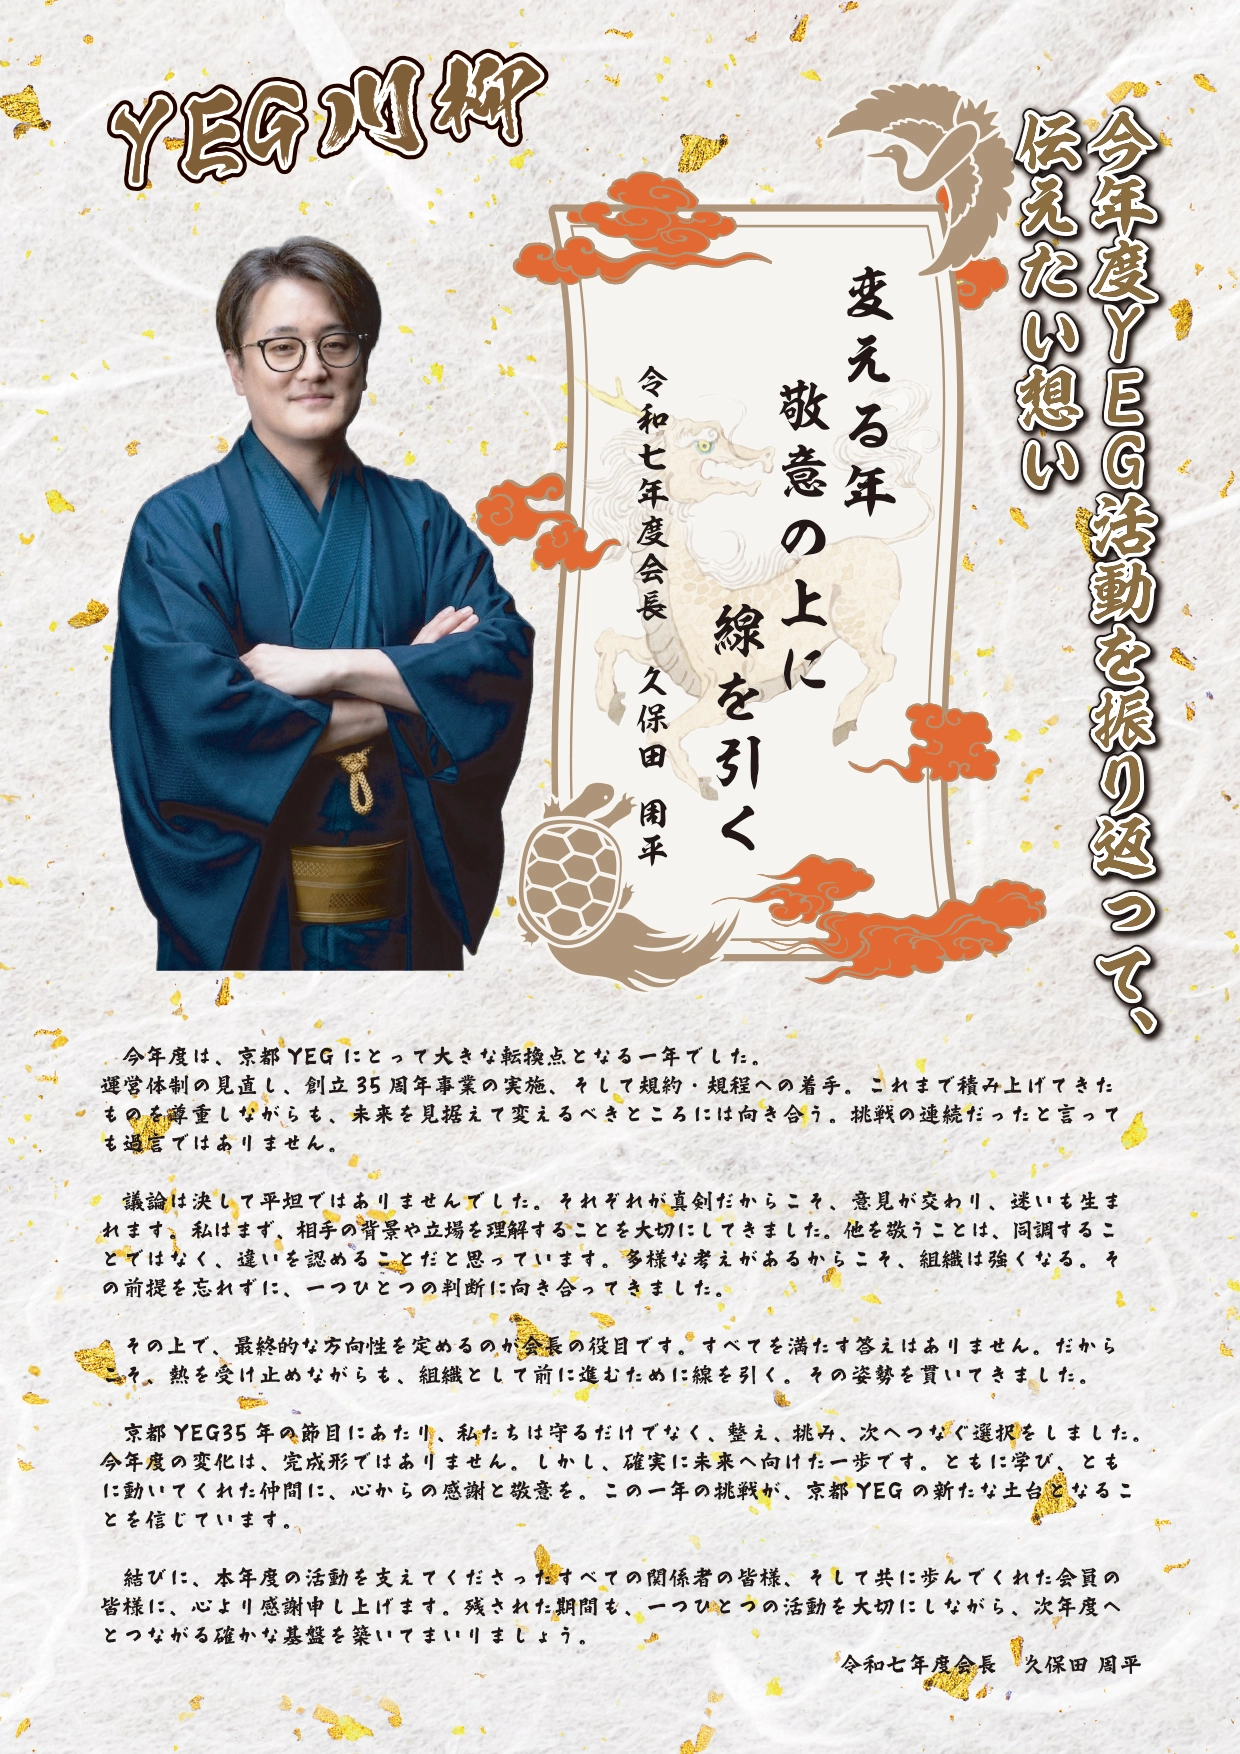 YEG川柳
今年度YEG活動を振り返って、
伝えたい想い
変える年
敬意の上に
線を引く
令和七年度会長 久保田 周平
今年度は、京都YEGにとって大きな転換点となる一年でした。
運営体制の見直し、創立35周年事業の実施、そして規約・規程への着手。これまで積み上げてきた
ものを尊重しながらも、未来を見据えて変えるべきところには向き合う。挑戦の連続だったと言って
も過言ではありません。
議論は決して平坦ではありませんでした。それぞれが真剣だからこそ、意見が交わり、迷いも生ま
れます。私はまず、相手の背景や立場を理解することを大切にしてきました。他を敬うことは、同調するこ
とではなく、違いを認めることだと思っています。多様な考えがあるからこそ、組織は強くなる。そ
の前提を忘れずに、一つひとつの判断に向き合ってきました。
その上で、最終的な方向性を定めるのが会長の役目です。すべてを満たす答えはありません。だから
こそ、熱を受け止めながらも、組織として前に進むために線を引く。その姿勢を貫いてきました。
京都YEG35年の節目にあたり、私たちは守るだけでなく、整え、挑み、次へつなぐ選択をしました。
今年度の変化は、完成形ではありません。しかし、確実に未来へ向けた一歩です。ともに学び、とも
に動いてくれた仲間に、心からの感謝と敬意を。この一年の挑戦が、京都YEGの新たな土台となるこ
とを信じています。
結びに、本年度の活動を支えてくださったすべての関係者の皆様、そして共に歩んでくれた会員の
皆様に、心より感謝申し上げます。残された期間も、一つひとつの活動を大切にしながら、次年度へ
とつながる確かな基盤を築いてまいりましょう。
令和七年度会長 久保田 周平